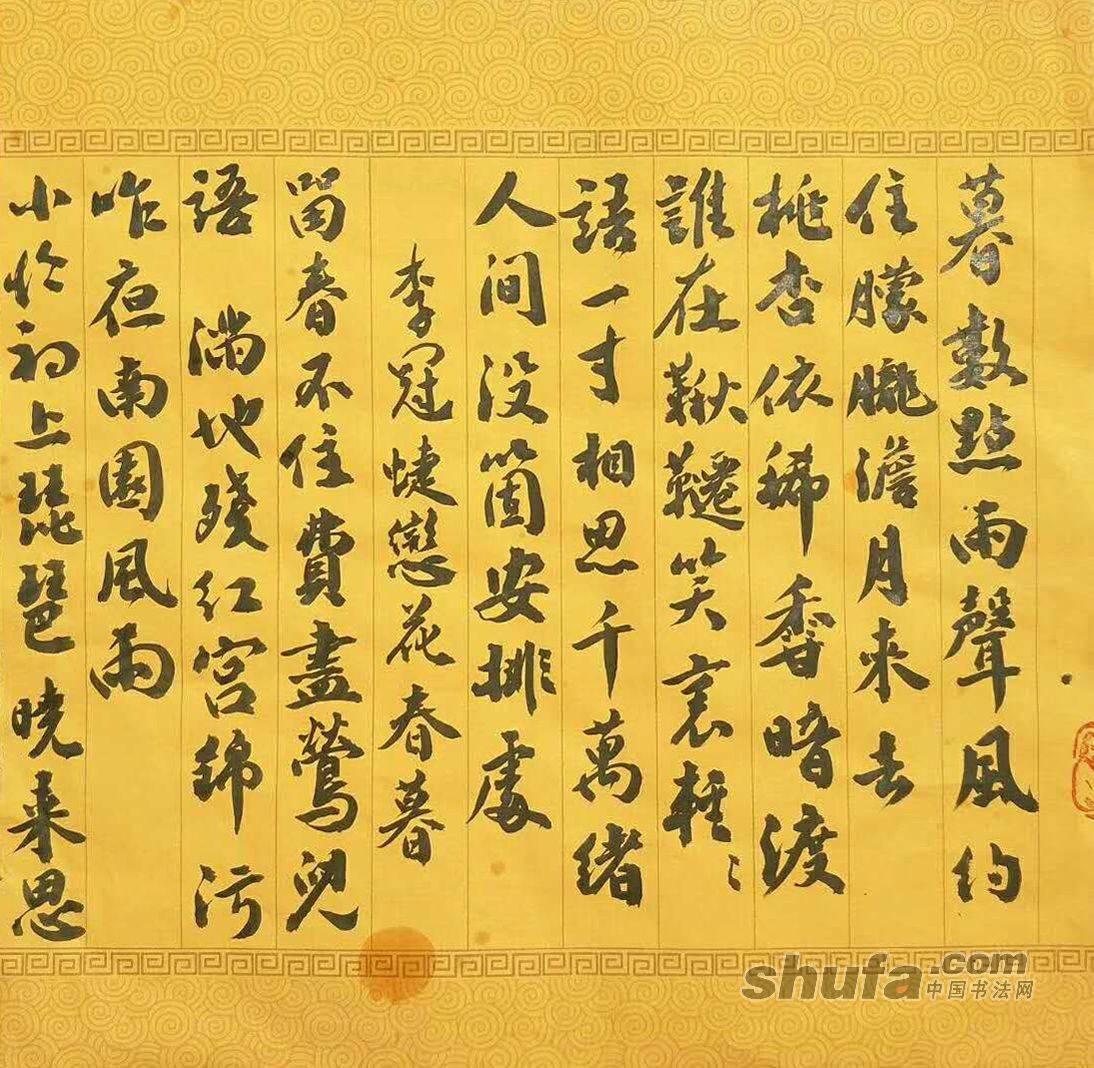 暮數點雨聲風約
住朦朧澹月来去
桃杏依稀香暗渡
誰在鞦韆笑裏輕〻
語一寸相思千萬緒
人间没箇安排處
李冠蜨戀花春暮
留春不住費盡鶯兒
語 滿地殘红宫錦污
昨夜南園風雨
小怜初上琵琶 曉来思
shufa.com
中国书法网